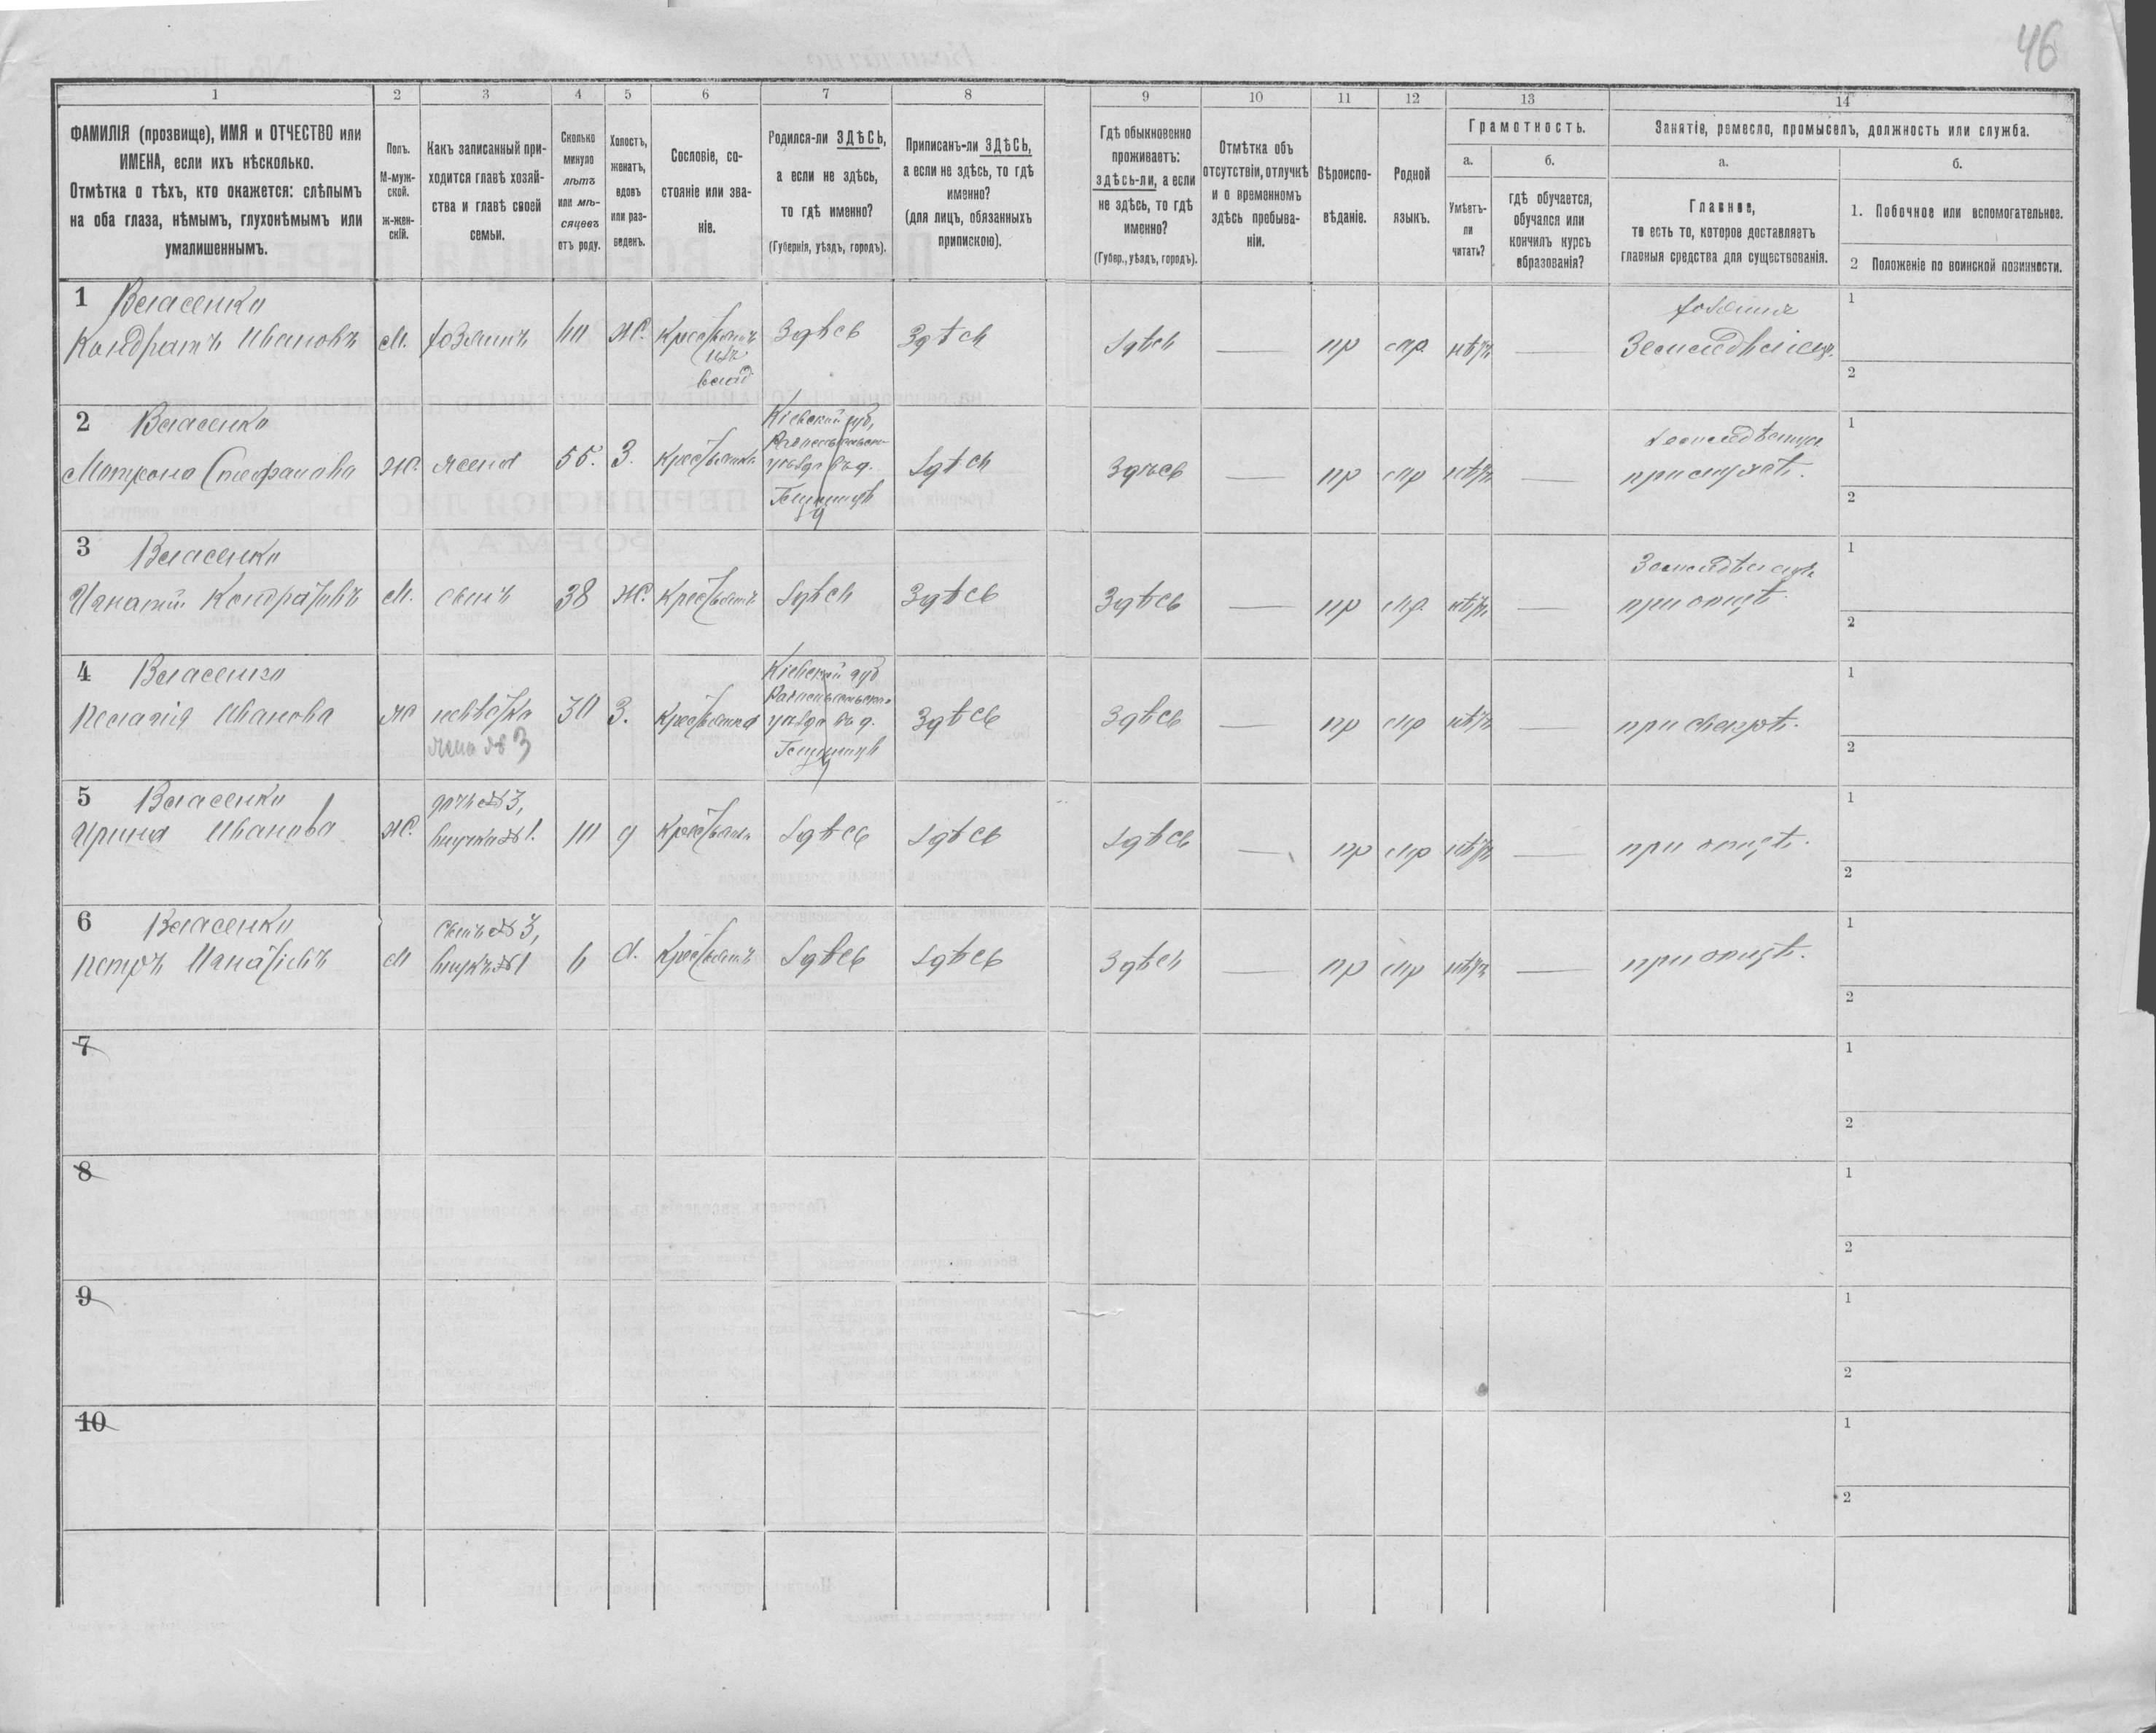 46
1
2
3
4
5
6
7
8
9
10
11
12
13
14
ФАМИЛІЯ (прозвище), ИМЯ и ОТЧЕСТВО или
ИМЕНА, если ихъ нѣсколько.
Отмѣтка о тѣхъ, кто окажется: слѣпымъ
на оба глаза, нѣмымъ, глухонѣмымъ или
умалишеннымъ.
Полъ.
М-муж-
ской.
ж-жен-
скій.
Какъ записанный при-
ходится главѣ хозяй-
ства и главѣ своей
семьи.
Сколько
минуло
лѣтъ
или мѣ-
сяцевъ
отъ роду.
Холостъ,
женатъ,
вдовъ
или раз-
веденъ.
Сословіе, со-
стояніе или зва-
ніе.
Родился-ли ЗДѢСЬ,
а если не здѣсь,
то гдѣ именно?
(Губернія, уѣздъ, городъ).
Приписанъ-ли ЗДѢСЬ,
а если не здѣсь, то гдѣ
именно?
(для лицъ, обязанныхъ
припискою).
Гдѣ обыкновенно
проживаетъ:
здѣсь-ли, а если
не здѣсь, то гдѣ
именно?
(Губер., уѣздъ, городъ).
Отмѣтка объ
отсутствіи, отлучкѣ
и о временномъ
здѣсь пребыва-
ніи.
Вѣроиспо-
вѣданіе.
Родной
языкъ.
Грамотность.
а.
Умѣетъ-
ли
читать?
б.
гдѣ обучается,
обучался или
кончилъ курсъ
образованія?
Занятіе, ремесло, промыселъ, должность или служба.
а.
Главное,
то есть то, которое доставляетъ
главныя средства для существованія.
б.
1. Побочное или вспомогательное.
2 Положеніе по воинской повинности.
1 Власенко
Кондратъ Ивановъ М. хозяинъ 60 Ж. Крестьянинъ Здѣсь Здѣсь Здѣсь — пр мр. нѣтъ — хозяинъ
Земледѣлецъ.
1
2
2 Власенко
Матрона Стефанова Ж. жена 55. З. Крестьянка
Кіевской губ,
уѣзда въ д.
Здѣсь Здѣсь — пр мр нѣтъ —
при мужѣ.
1
2
3 Власенко
Игнатій Кондратовъ М. сынъ 38 Ж. Крестьянинъ Здѣсь Здѣсь Здѣсь — пр мр. нѣтъ — Земледѣлецъ
при отцѣ.
1
2
4 Власенко
Пелагія Иванова Ж невѣстка 30 З. Крестьянка
жена №3
Кіевской губ
уѣзда въ д.
Здѣсь Здѣсь — пр мр нѣтъ —
при свекрѣ.
1
2
5 Власенко
Ирина Иванова Ж. дочь №3,
внучка №1. 10 д Крестьянка Здѣсь Здѣсь Здѣсь — пр мр нѣтъ — при отцѣ.
1
2
6 Власенко
Петръ Игнатьевъ М сынъ №3,
внукъ №1 6 Х. Крестьянинъ Здѣсь Здѣсь Здѣсь — пр мр нѣтъ — при отцѣ.
1
2
7
1
2
8
1
2
9
1
2
10
1
2